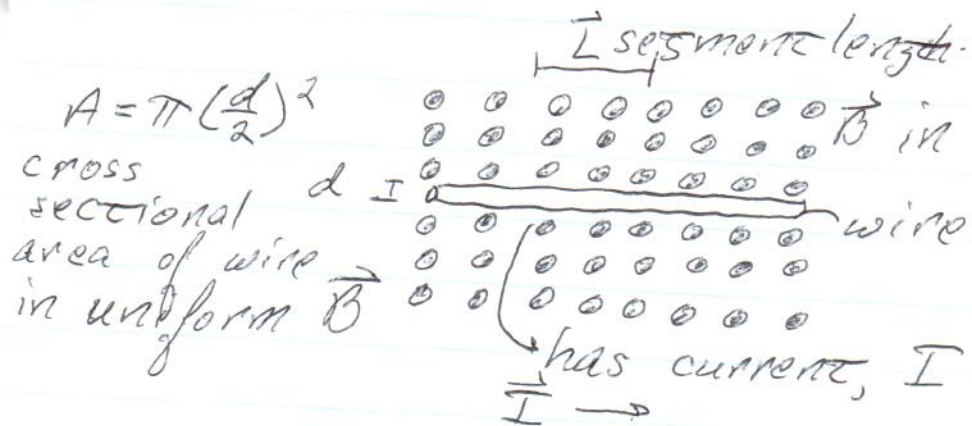 L⃗ segment length
A = π(d/2)²
B⃗ in
cross
sectional
area of wire
in uniform B⃗
d I
wire
has current, I
I⃗ →